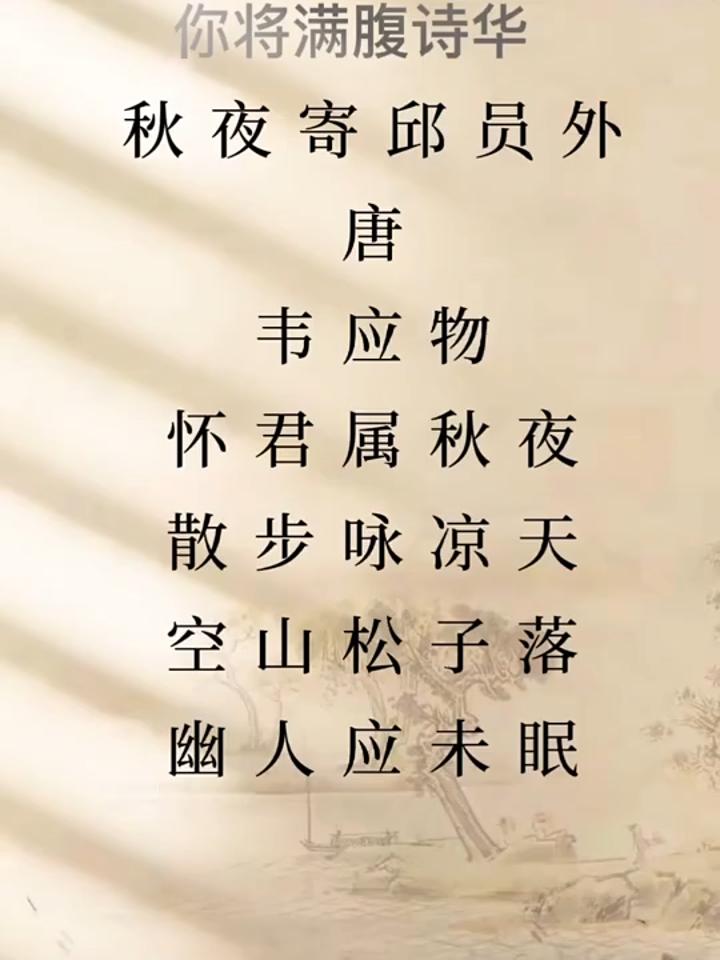 你将满腹诗华
秋夜寄邱员外
唐
韦应物
怀君属秋夜
散步咏凉天
空山松子落
幽人应未眠